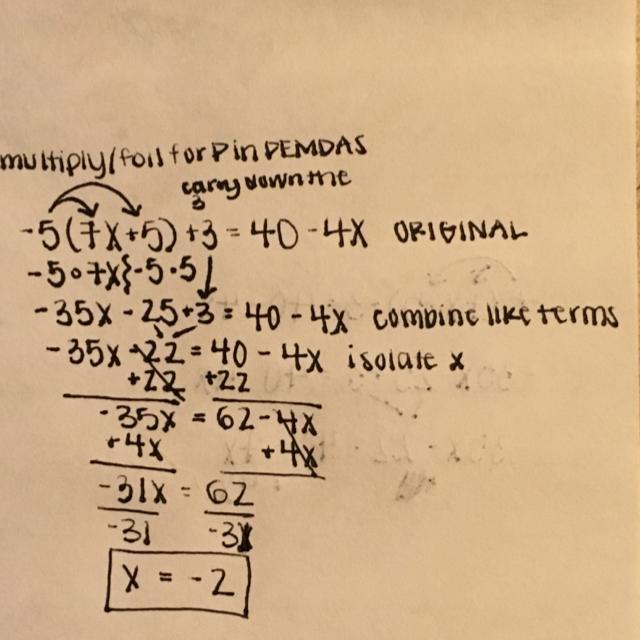 multiply/foil for P in PEMDAS
carry down the
3
-5(7x+5)+3=40-4x ORIGINAL
-5•7x}-5•5
-35x-25+3=40-4x combine like terms
-35x-22=40-4x isolate x
+22 +22
-35x=62-4x
+4x +4x
-31x=62
-31 -31
x=-2